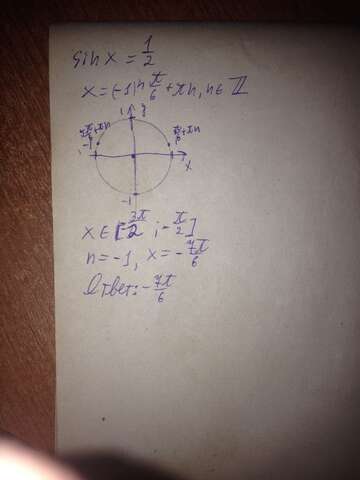 sin x = 1/2
x = (-1)^n π/6 + πn, n ∈ Z
1 y
π/6 + πn
-1
x
-1
x ∈ [-3π/2 ; -π/2]
n = -1, x = -7π/6
Ответ: -7π/6